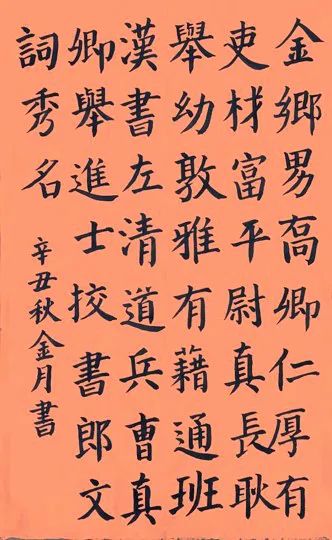 金鄉男高卿仁厚有
吏材富平尉真長耿
舉幼敦雅有藉通班
漢書左清道兵曹真
卿舉進士挍書郎文
詞秀名
辛丑秋金月書